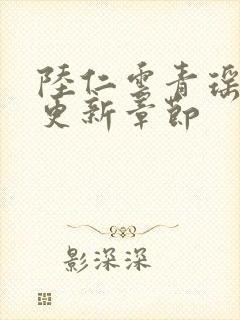 陸仁雲青瑶
更新章節
影深深